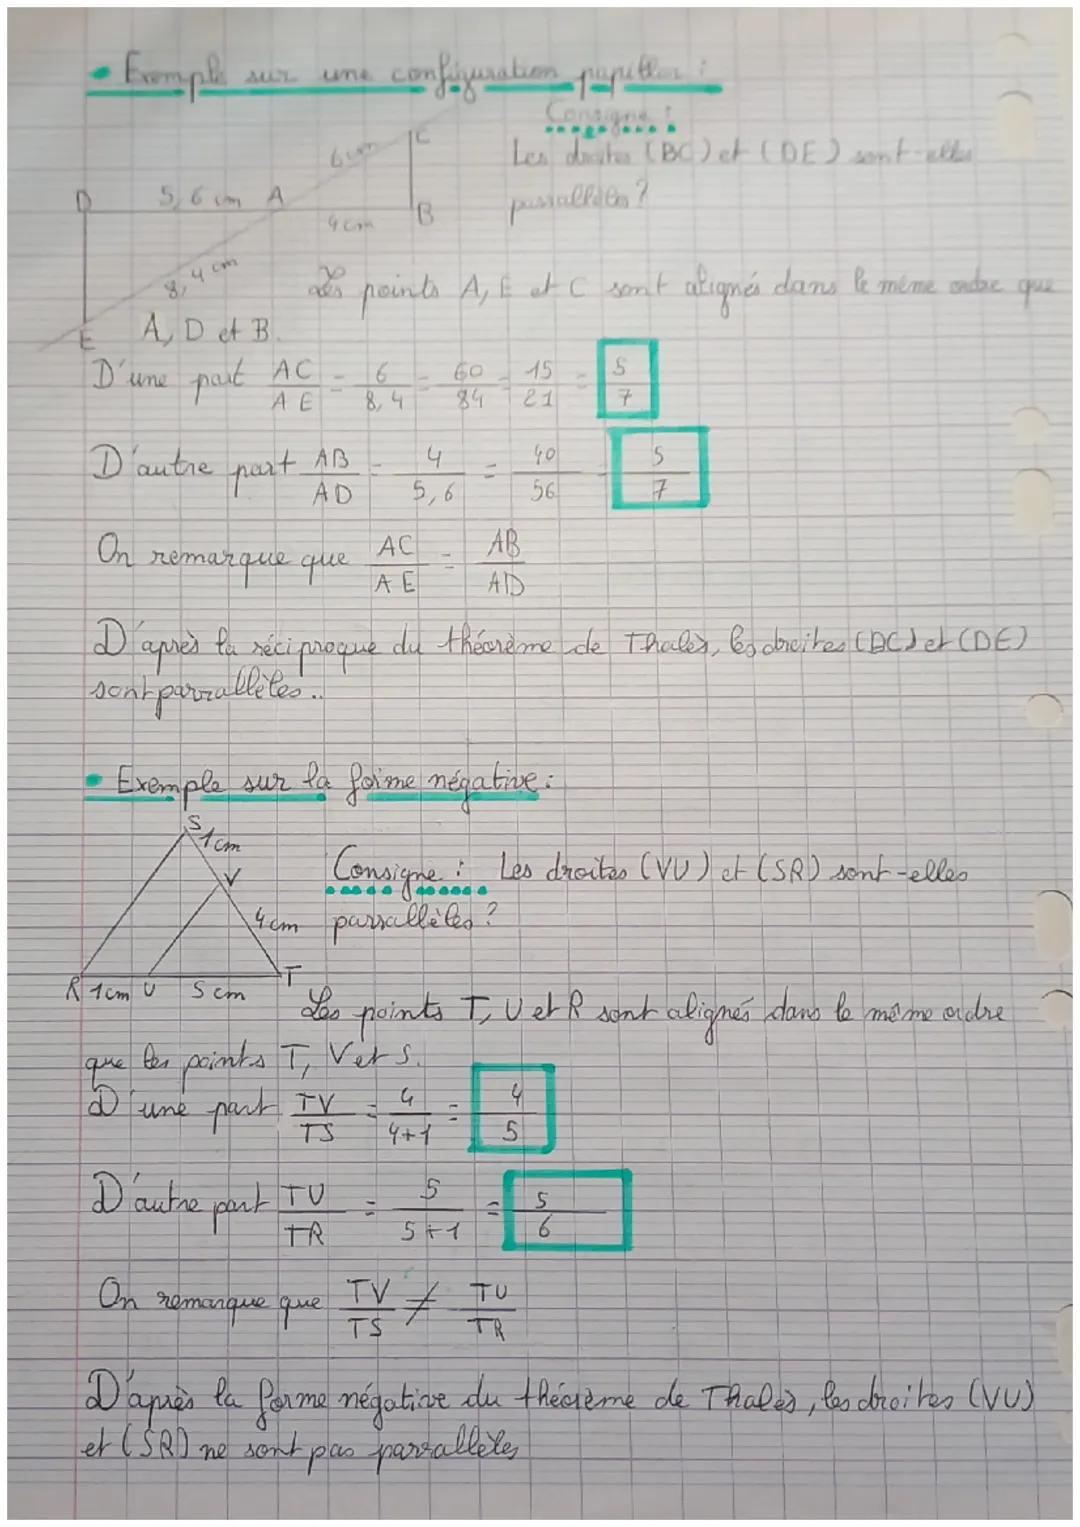 • Exemple sur une configuration papillon :
Consigne :
Les droites (BC) et (DE) sont-elles
parrallèles ?
C
6 cm
D 5,6 cm A
4 cm B
8,4 cm
E
Les points A, E et C sont alignés dans le même ordre que
A, D et B.
D'une part AC/AE = 6/8,4 = 60/84 = 15/21 = 5/7
D'autre part AB/AD = 4/5,6 = 40/56 = 5/7
On remarque que AC/AE = AB/AD
D'après la réciproque du théorème de Thalès, les droites (BC) et (DE)
sont parrallèles..
• Exemple sur la forme négative :
S
1 cm
V
4 cm
R 1cm U 5 cm T
Consigne : Les droites (VU) et (SR) sont-elles
parrallèles ?
Les points T, U et R sont alignés dans le même ordre
que les points T, V et S.
D'une part TV/TS = 4/4+1 = 4/5
D'autre part TU/TR = 5/5+1 = 5/6
On remarque que TV/TS ≠ TU/TR
D'après la forme négative du théorème de Thalès, les droites (VU)
et (SR) ne sont pas parrallèles